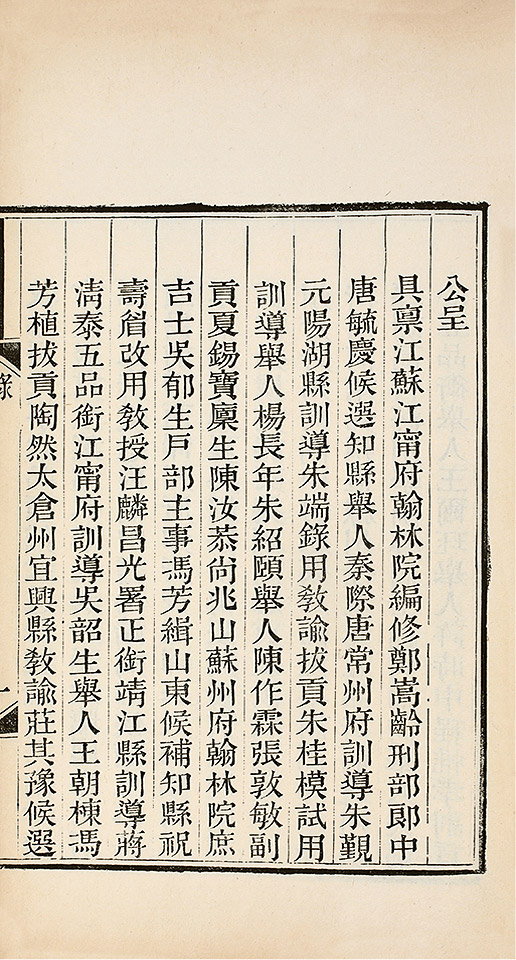 公呈
具稟江蘇江甯府翰林院編修鄭嵩齡刑部郎中
唐毓慶候選知縣舉人秦際唐常州府訓導朱覲
元陽湖縣訓導朱端錄用教諭拔貢朱桂模試用
訓導舉人楊長年朱紹頤舉人陳作霖張敦敏副
貢夏錫寶廩生陳汝恭尙兆山蘇州府翰林院庶
吉士吳郁生戶部主事馮芳緝山東候補知縣祝
壽眉改用教授汪麟昌光署正銜靖江縣訓導蔣
淸泰五品銜江甯府訓導吳韶生舉人王朝棟馮
芳植拔貢陶然太倉州宜興縣教諭莊其豫候選
錄
一